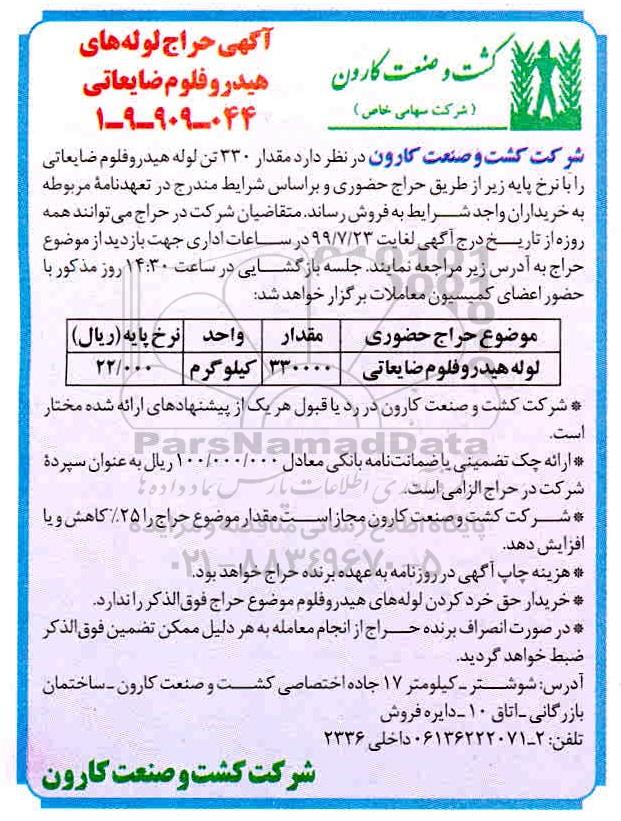 آگهی حراج لوله‌های
هیدروفلوم ضایعاتی
۱-۹-۹۰۹-۰۴۴
کشت و صنعت کارون
(شرکت سهامی خاص)
شرکت کشت و صنعت کارون در نظر دارد مقدار ۳۳۰ تن لوله هیدروفلوم ضایعاتی
را با نرخ پایه زیر از طریق حراج حضوری و براساس شرایط مندرج در تعهدنامهٔ مربوطه
به خریداران واجد شرایط به فروش رساند. متقاضیان شرکت در حراج می‌توانند همه
روزه از تاریخ درج آگهی لغایت ۹۹/۷/۲۳ در ساعات اداری جهت بازدید از موضوع
حراج به آدرس زیر مراجعه نمایند. جلسه بازگشایی در ساعت ۱۴:۳۰ روز مذکور با
حضور اعضای کمیسیون معاملات برگزار خواهد شد:
موضوع حراج حضوری مقدار واحد نرخ پایه (ریال)
لوله هیدروفلوم ضایعاتی ۳۳۰۰۰۰ کیلوگرم ۲۲/۰۰۰
* شرکت کشت و صنعت کارون در رد یا قبول هر یک از پیشنهادهای ارائه شده مختار
است.
* ارائه چک تضمینی یا ضمانت‌نامه بانکی معادل ۱۰۰/۰۰۰/۰۰۰ ریال به عنوان سپردهٔ
شرکت در حراج الزامی است.
* شرکت کشت و صنعت کارون مجاز است مقدار موضوع حراج را ۲۵٪ کاهش و یا
افزایش دهد.
* هزینه چاپ آگهی در روزنامه به عهده برنده حراج خواهد بود.
* خریدار حق خرد کردن لوله‌های هیدروفلوم موضوع حراج فوق‌الذکر را ندارد.
* در صورت انصراف برنده حراج از انجام معامله به هر دلیل ممکن تضمین فوق‌الذکر
ضبط خواهد گردید.
آدرس: شوشتر - کیلومتر ۱۷ جاده اختصاصی کشت و صنعت کارون - ساختمان
بازرگانی - اتاق ۱۰ - دایره فروش
تلفن: ۲-۰۶۱۳۶۲۲۲۰۷۱ داخلی ۲۳۳۶
شرکت کشت و صنعت کارون
ParsNamadData
پایگاه اطلاع رسانی مناقصه و مزایده
۰۲۱-۸۸۳۴۹۶۷۰-۵